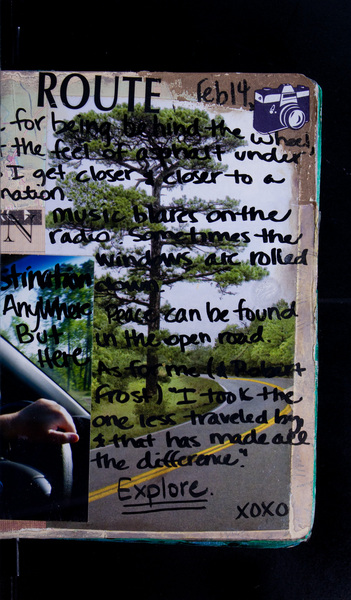 ROUTE Feb 14,
for being behind the wheel,
the feel of asphalt under
I get closer & closer to a
nation.
N Music blares on the
radio. Sometimes the
windows are rolled
down.
stination
Anywhere
But
Here
Peace can be found
in the open road.
As for me (& Robert
Frost) "I took the
one less traveled by
& that has made all
the difference".
Explore.
xoxo